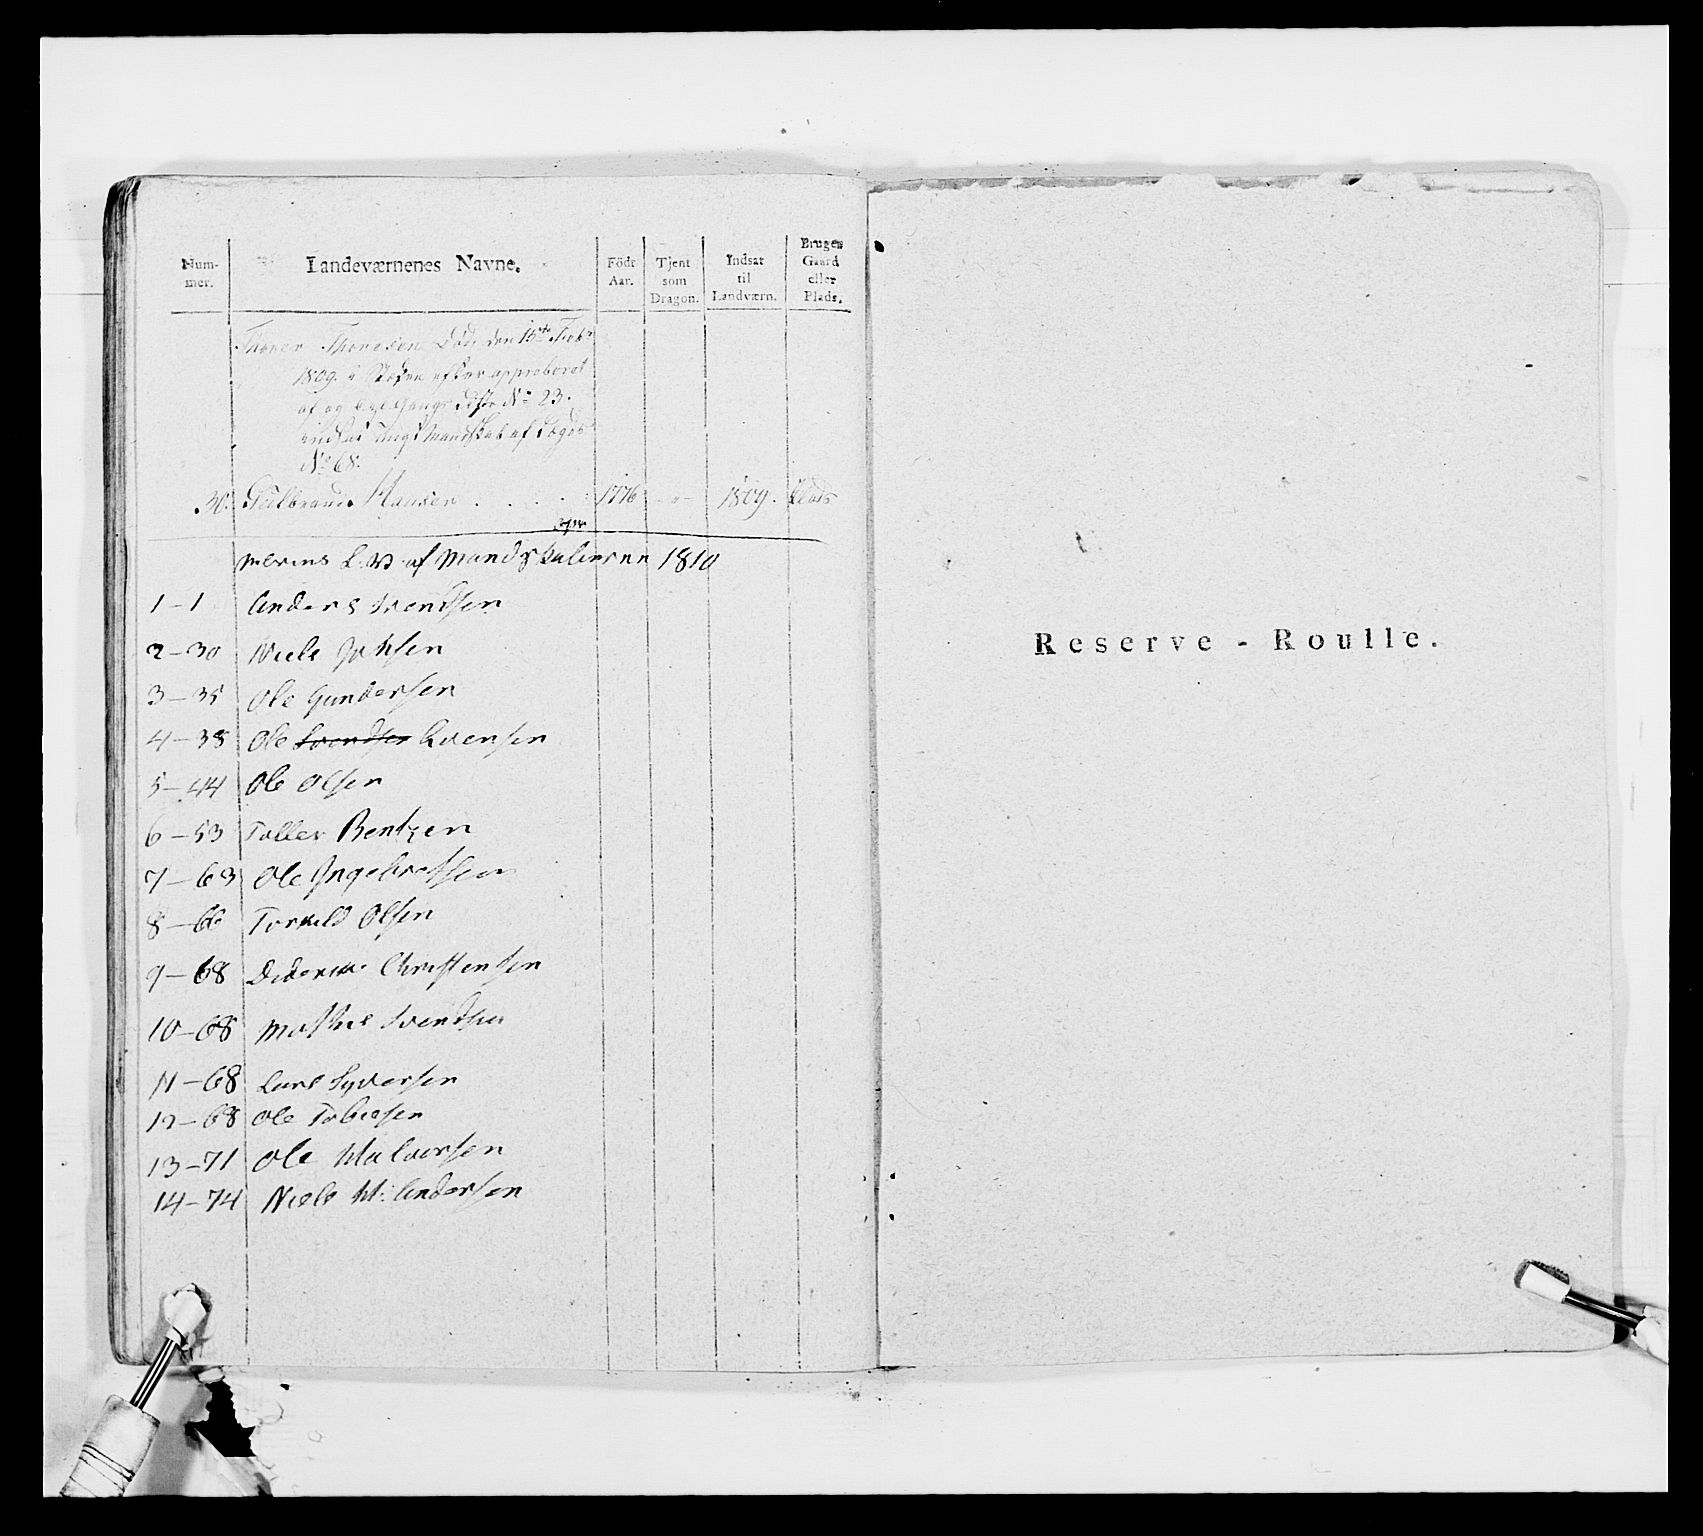 Num-
mer.
Landeværnenes Navne.
Födt
Aar.
Tjent
som
Dragon.
Indsat
til
Landværn.
Bruger
Gaard
eller
Plads.
Thorer Thoresen Död den 15de Febr
1809. efter approberet
af og No 23.
indsat ungt Mandskab af
No 68.
30. Gulbrand Hansen . . . . 1776 - " - 1809. Plads
L. V. af Mandskaberne 1810
1-1 Anders Svendsen
2-30 Niels Johsen
3-35 Ole Gundersen
4-38 Ole Svendsen Evensen
5-44 Ole Olsen
6-53 Toller Bentzen
7-63 Ole Ingebretsen
8-66 Torkild Olsen
9-68 Diderik Christensen
10-68 Mathis Svendsen
11-68 Lars Syversen
12-68 Ole Tobiesen
13-71 Ole Halvorsen
14-74 Niels H: Andersen
Reserve - Roulle.